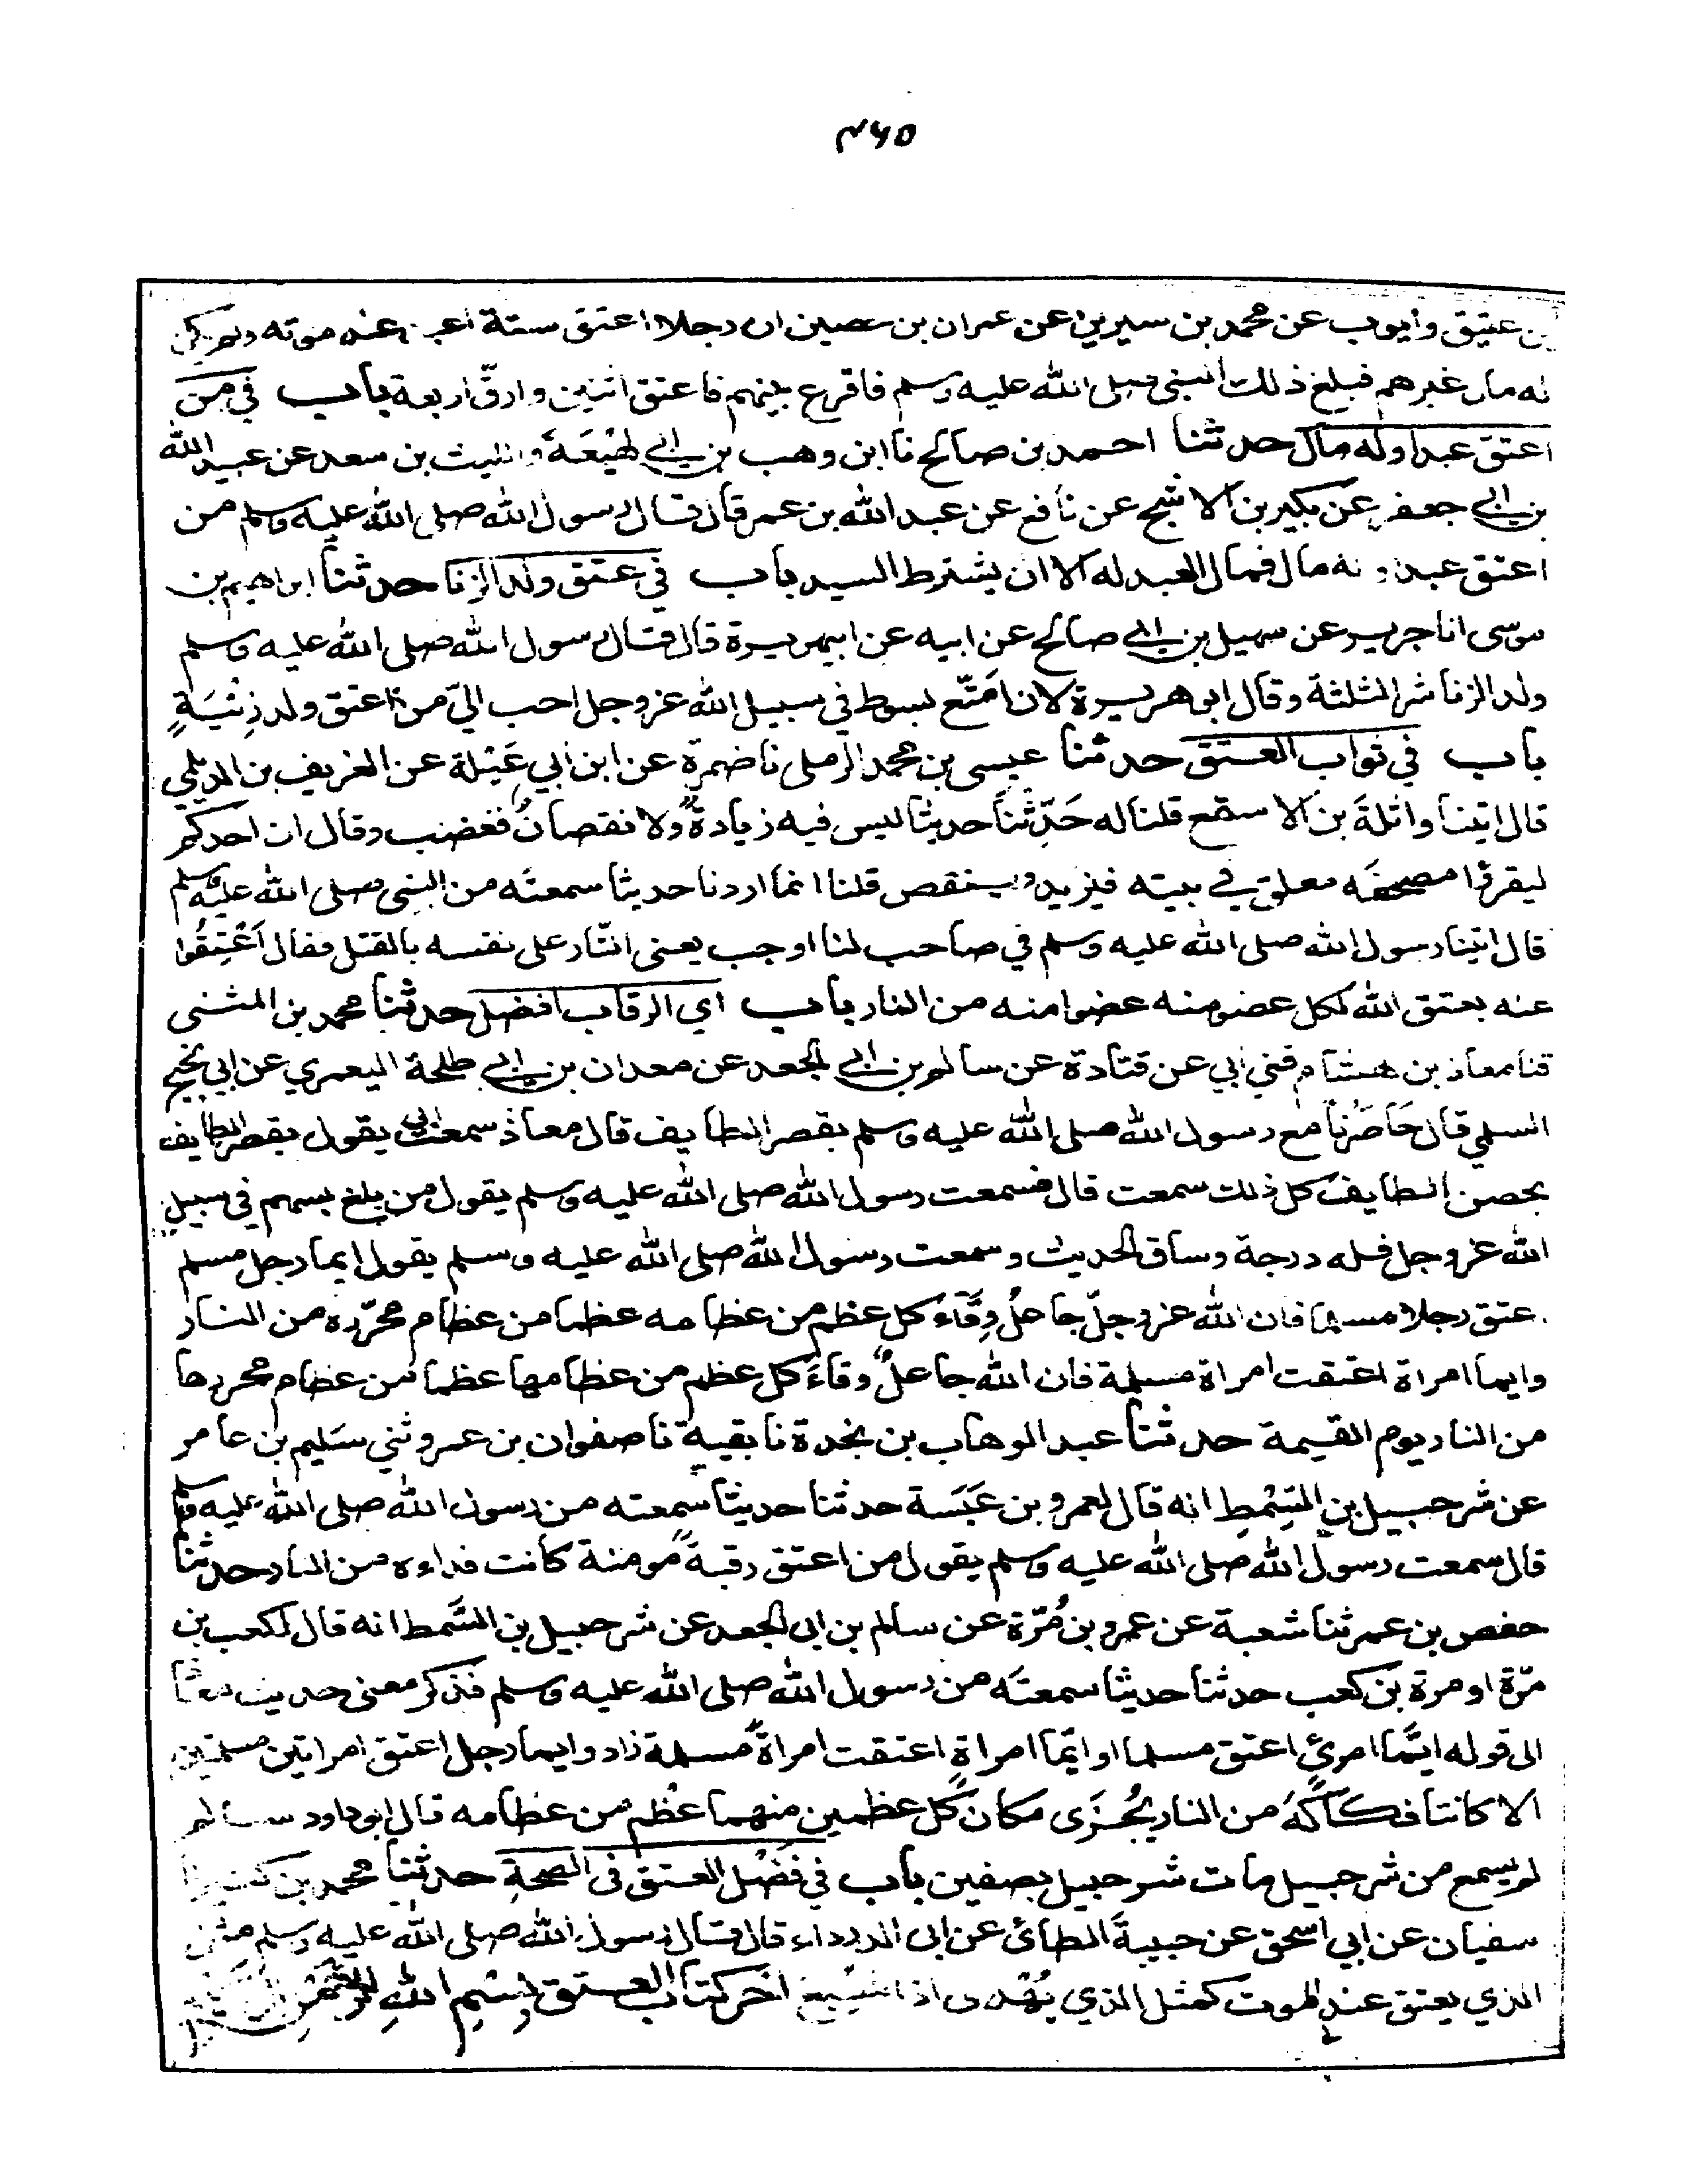 ۴۶۵
بن عتيق وأيوب عن محمد بن سيرين عن عمران بن حصين ان رجلا اعتق ستة اعبد عند موته ولم يكن
له مال غيرهم فبلغ ذلك النبي صلى الله عليه وسلم فاقرع بينهم فاعتق اثنين وارقّ اربعة باب في من
اعتق عبدا وله مال حدثنا احمد بن صالح نا ابن وهب بن ابي لهيْعَةَ والليث بن سعد عن عبيد الله
بن ابي جعفر عن بكير بن الاشج عن نافع عن عبد الله بن عمر قال قال رسول الله صلى الله عليه وسلم من
اعتق عبدا وله مال فمال العبد له الا ان يشترط السيد باب في عتق ولد الزنا حدثنا ابراهيم بن
موسى انا جرير عن سهيل بن ابي صالح عن ابيه عن ابيهريرة قال قال رسول الله صلى الله عليه وسلم
ولد الزنا شر الثلثة وقال ابو هريرة لان امَتّع بسوط في سبيل الله عز وجل احب اليّ من اعتق ولد زِنْيَةٍ
باب في ثواب العتق حدثنا عيسى بن محمد الرملي نا ضمرة عن ابن أبي عَبْلة عن الغريف بن الديلمي
قال اتينا واثلةَ بن الاسقع قلنا له حَدِّثنَا حديثا ليس فيه زيادةٌ ولا نقصانٌ فغضب وقال ان احدكم
ليقرؤا مصحفَه معلق في بيته فيزيد وينقص قلنا انما اردنا حديثا سمعتَه من النبي صلى الله عليه وسلم
قال اتينا رسول الله صلى الله عليه وسلم في صاحب لنا اوجب يعنى النّار على نفسه بالقتل فقال اَعْتِقُوا
عنه يعتق الله لكل عضو منه عضوا منه من النار باب اي الرقاب افضل حدثنا محمد بن المثنى
ثنا معاذ بن هشام ثني أبي عن قتادة عن سالم بن ابي الجعد عن معدان بن ابي طلحة اليعمري عن ابي نجيح
السلمي قال حَاصَرْنا مع رسول الله صلى الله عليه وسلم بقصر الطايف قال معاذ سمعت ابي يقول بقصر الطايف
بحصن الطايف كل ذلك سمعت قال فسمعت رسول الله صلى الله عليه وسلم يقول من بلغ بسهم في سبيل
الله عز وجل فله درجة وساق الحديث وسمعت رسول الله صلى الله عليه وسلم يقول ايما رجل مسلم
اعتق رجلا مسلما فان الله عز وجلّ جاعلٌ وِقَاءَ كل عظم من عظامه عظما من عظام محرّره من النار
وايما امراة اعتقت امراة مسلمة فان الله جاعلٌ وقاءَ كل عظم من عظامها عظما من عظام محررها
من النار يوم القيمة حدثنا عبد الوهاب بن نجدة نا بقية نا صفوان بن عمرو ثني سَليم بن عامر
عن شرحبيل بن السِّمْطِ انه قال لعمرو بن عَبَسة حدثنا حديثا سمعته من رسول الله صلى الله عليه وسلم
قال سمعت رسول الله صلى الله عليه وسلم يقول من اعتق رقبةً مومنة كانت فداءه من النار حدثنا
حفص بن عمر ثنا شعبة عن عمرو بن مُرّة عن سالم بن ابي الجعد عن شرحبيل بن السّمط انه قال لكعب بن
مرّة او مرة بن كعب حدثنا حديثا سمعتَه من رسول الله صلى الله عليه وسلم فذكر معنى حديث معاذ
الى قوله ايّما امرئٍ اعتق مسلما او ايّما امراةٍ اعتقت امراةً مسلمة زاد وايما رجل اعتق امراتين مسلمتين
الا كانتا فكاكَهُ من النار يُجْزَى مكان كل عظمين منهما عظم من عظامه قال ابو داود سالم
لم يسمع من شرحبيل مات شرحبيل بصفين باب في فضل العتق في الصحة حدثنا محمد بن كثير انا
سفيان عن ابي اسحق عن حبيبة الطائي عن ابي الدرداء قال قال رسول الله صلى الله عليه وسلم مثل
الذي يعتق عند الموت كمثل الذي يُهْدى اذا شبع اخر كتاب العتق بسم الله الرحمن